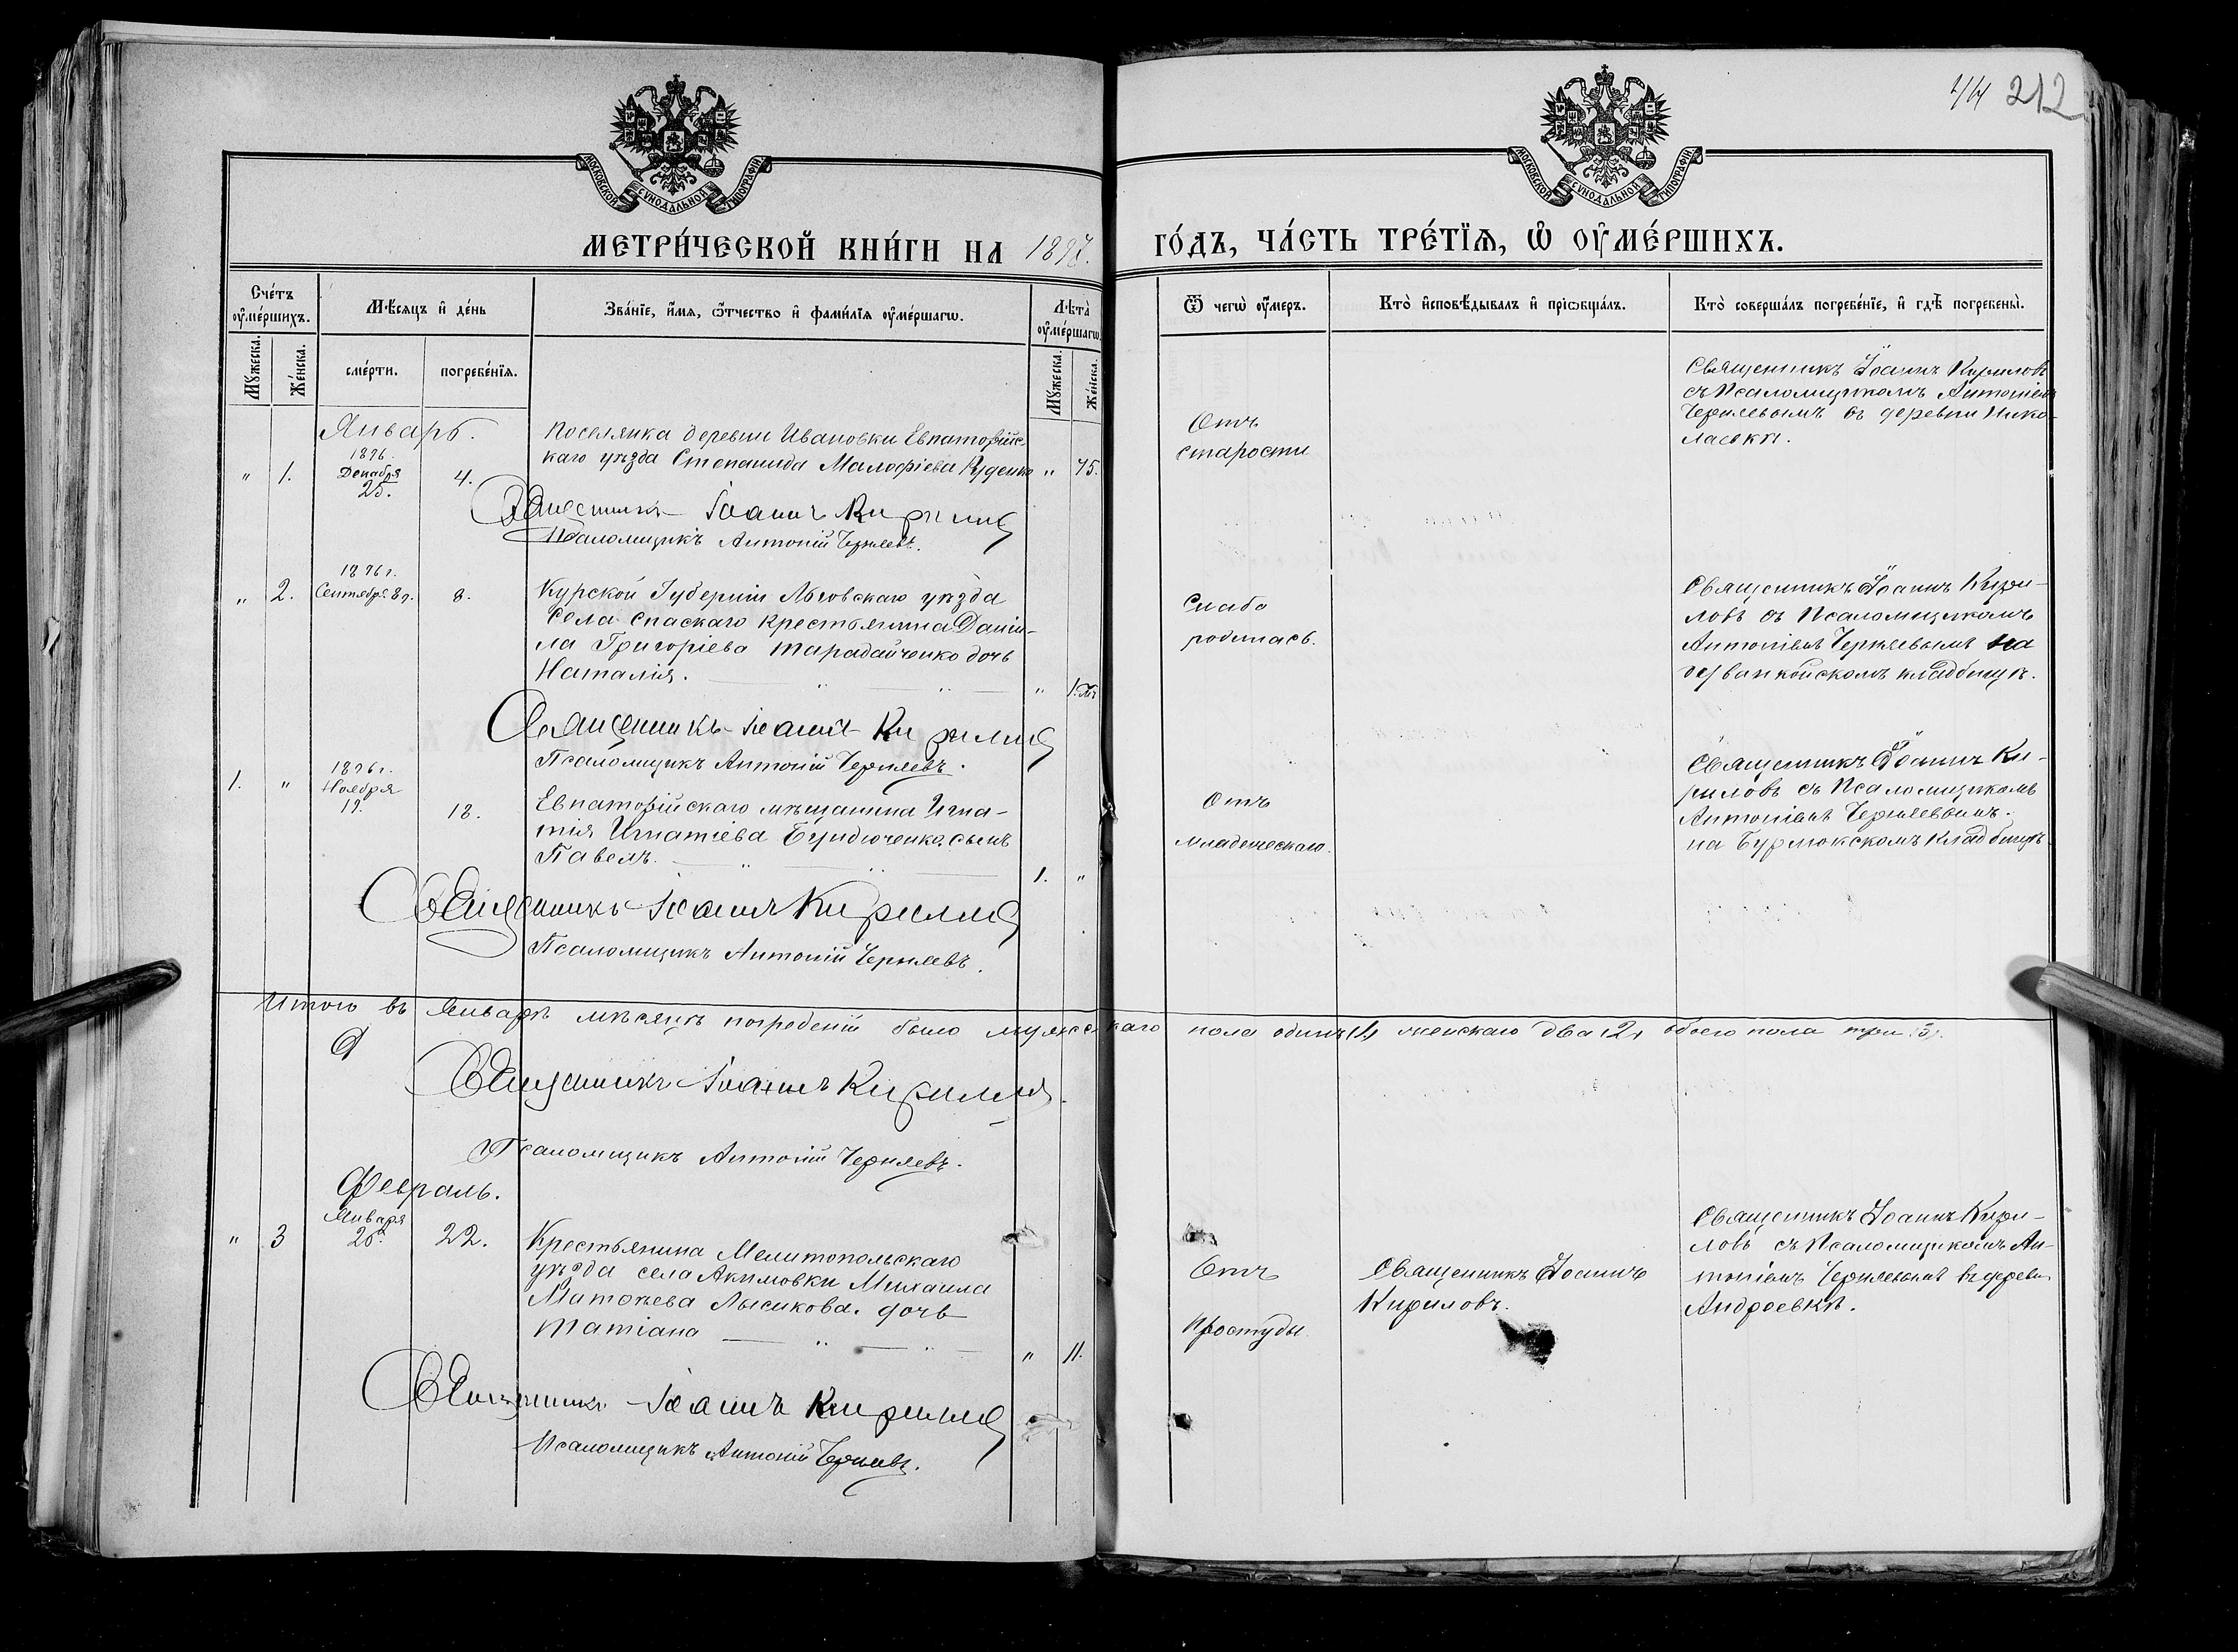 212
МОСКОВСКОЙ СУНОДАЛЬНОЙ ТИПОГРАФІИ
МОСКОВСКОЙ СУНОДАЛЬНОЙ ТИПОГРАФІИ
МЕТРИ́ЧЕСКОЙ КНИ́ГИ НА 1897.
ГО́ДЪ, ЧА́СТЬ ТРЕ́ТЇѦ, Ѡ҆ ОУ҆МЕ́РШИХЪ.
Сче́тъ оу҆ме́ршихъ.
Мꙋ́жеска.
Же́нска.
Мѣ́сяцъ и҆ де́нь
сме́рти.
погребе́нїѧ.
Зва́нїе, и҆́мѧ, ѻ҆́тчество и҆ фами́лїѧ оу҆ме́ршагѡ.
Лѣ́та оу҆ме́ршагѡ
Мꙋ́жеска.
Же́нска.
Ѿ чегѡ̀ оу҆́меръ.
Кто̀ и҆сповѣ́дывалъ и҆ прїѡбща́лъ.
Кто̀ соверша́лъ погребе́нїе, и҆ гдѣ̀ погребены̀.
Январь.
" 1.
1896.
Декабря
25.
4.
Поселянка деревни Ивановки Евпаторійс-
каго уѣзда Степанида Малофіева Руденко " 75.
Отъ
старости
Священникъ Іоаннъ Кириловъ
съ Псаломщикомъ Антоніемъ
Черняевымъ въ деревни Нико-
лаевки.
Священникъ Іоаннъ Кириловъ
Псаломщикъ Антоній Черняевъ.
" 2.
1896 г.
Сентября 8 д.
8.
Курской Губерніи Льговскаго уѣзда
Села Спаскаго крестьянина Даніи-
ла Григоріева Тарадайченко дочь
Наталія. " 1.
Слабо
родилась.
Священникъ Іоаннъ Кири-
ловъ съ Псаломщикомъ
Антоніемъ Черняевымъ на
кладбищѣ.
Священникъ Іоаннъ Кириловъ
Псаломщикъ Антоній Черняевъ.
1. "
1896 г.
Ноября
19.
18.
Евпаторійскаго мѣщанина Игна-
тія Игнатіева Бундюченко сынъ
Павелъ. 1. "
Отъ
младенческаго.
Священникъ Іоаннъ Ки-
риловъ съ Псаломщикомъ
Антоніемъ Черняевымъ.
на Бурлюкскомъ кладбищѣ.
Священникъ Іоаннъ Кириловъ
Псаломщикъ Антоній Черняевъ.
Итого въ Январѣ мѣсяцѣ погребеній было мужескаго пола одинъ (1) женскаго два (2) обоего пола три (3).
Священникъ Іоаннъ Кириловъ.
Псаломщикъ Антоній Черняевъ.
Февраль.
" 3
Января
26.
22.
Крестьянина Мелитопольскаго
уѣзда села Акимовки Михаила
Матвѣева Лысикова. дочь
Татіана " 11.
Отъ
Простуды.
Священникъ Іоаннъ
Кириловъ.
Священникъ Іоаннъ Кири-
ловъ съ Псаломщикомъ Ан-
тоніемъ Черняевымъ въ деревн
Андреевкѣ.
Священникъ Іоаннъ Кириловъ
Псаломщикъ Антоній Черняевъ.